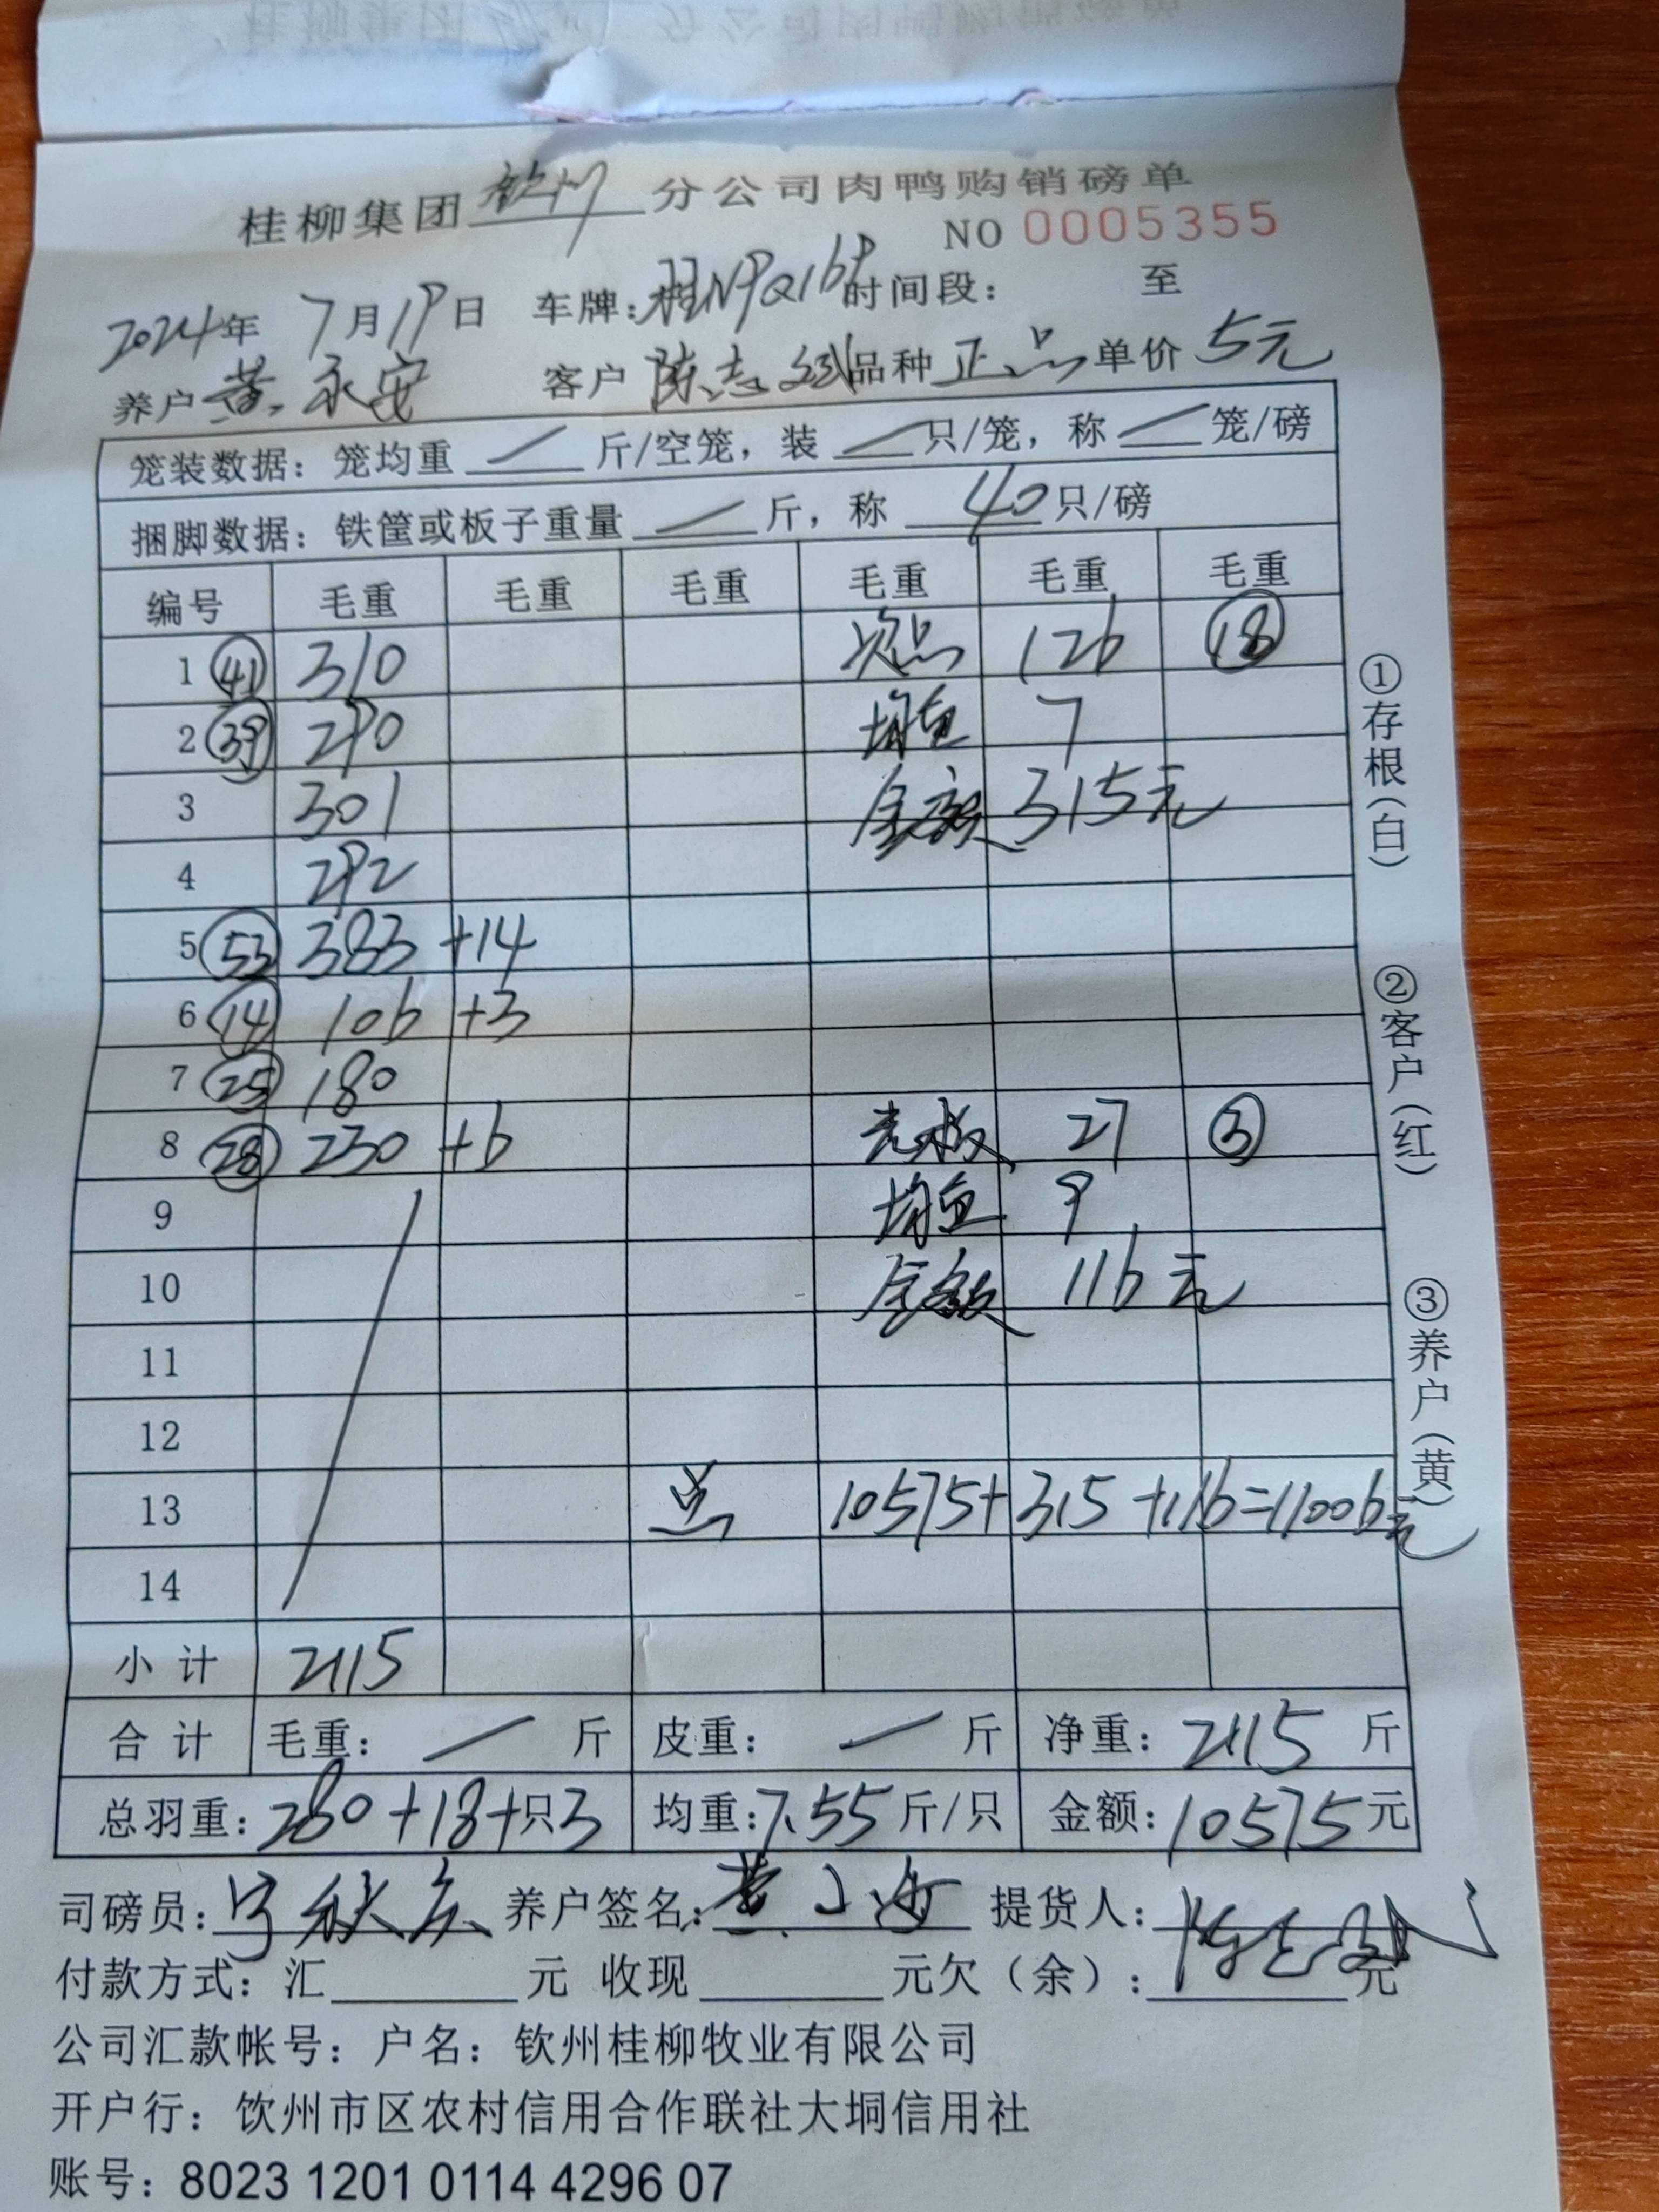 桂柳集团钦州分公司肉鸭购销磅单
NO 0005355
2024年 7月19日 车牌:桂N9Q169时间段: 至
养户 黄永安 客户 陈志斌 品种 正品 单价 5元
笼装数据: 笼均重 / 斤/空笼, 装 / 只/笼, 称 / 笼/磅
捆脚数据: 铁筐或板子重量 / 斤, 称 40 只/磅
编号 毛重 毛重 毛重 毛重 毛重 毛重
1 (41) 310 次品 126 (18)
2 (39) 290 均重 7
3 301 金额 315元
4 292
5 (53) 383 +14
6 (14) 106 +3
7 (25) 180
8 (28) 230 +6 光板 27 (3)
9 均重 9
10 金额 116元
11
12
13 总 10575+315+116=11006元
14
小计 2115
合计 毛重: / 斤 皮重: / 斤 净重: 2115 斤
总羽重: 280+18+只3 均重:7.55斤/只 金额:10575元
司磅员: 宁秋 养户签名: 黄小海 提货人: 陈志斌
付款方式: 汇 元 收现 元欠(余): 元
公司汇款帐号: 户名: 钦州桂柳牧业有限公司
开户行: 钦州市区农村信用合作联社大垌信用社
账号: 8023 1201 0114 4296 07
①存根(白)
②客户(红)
③养户(黄)